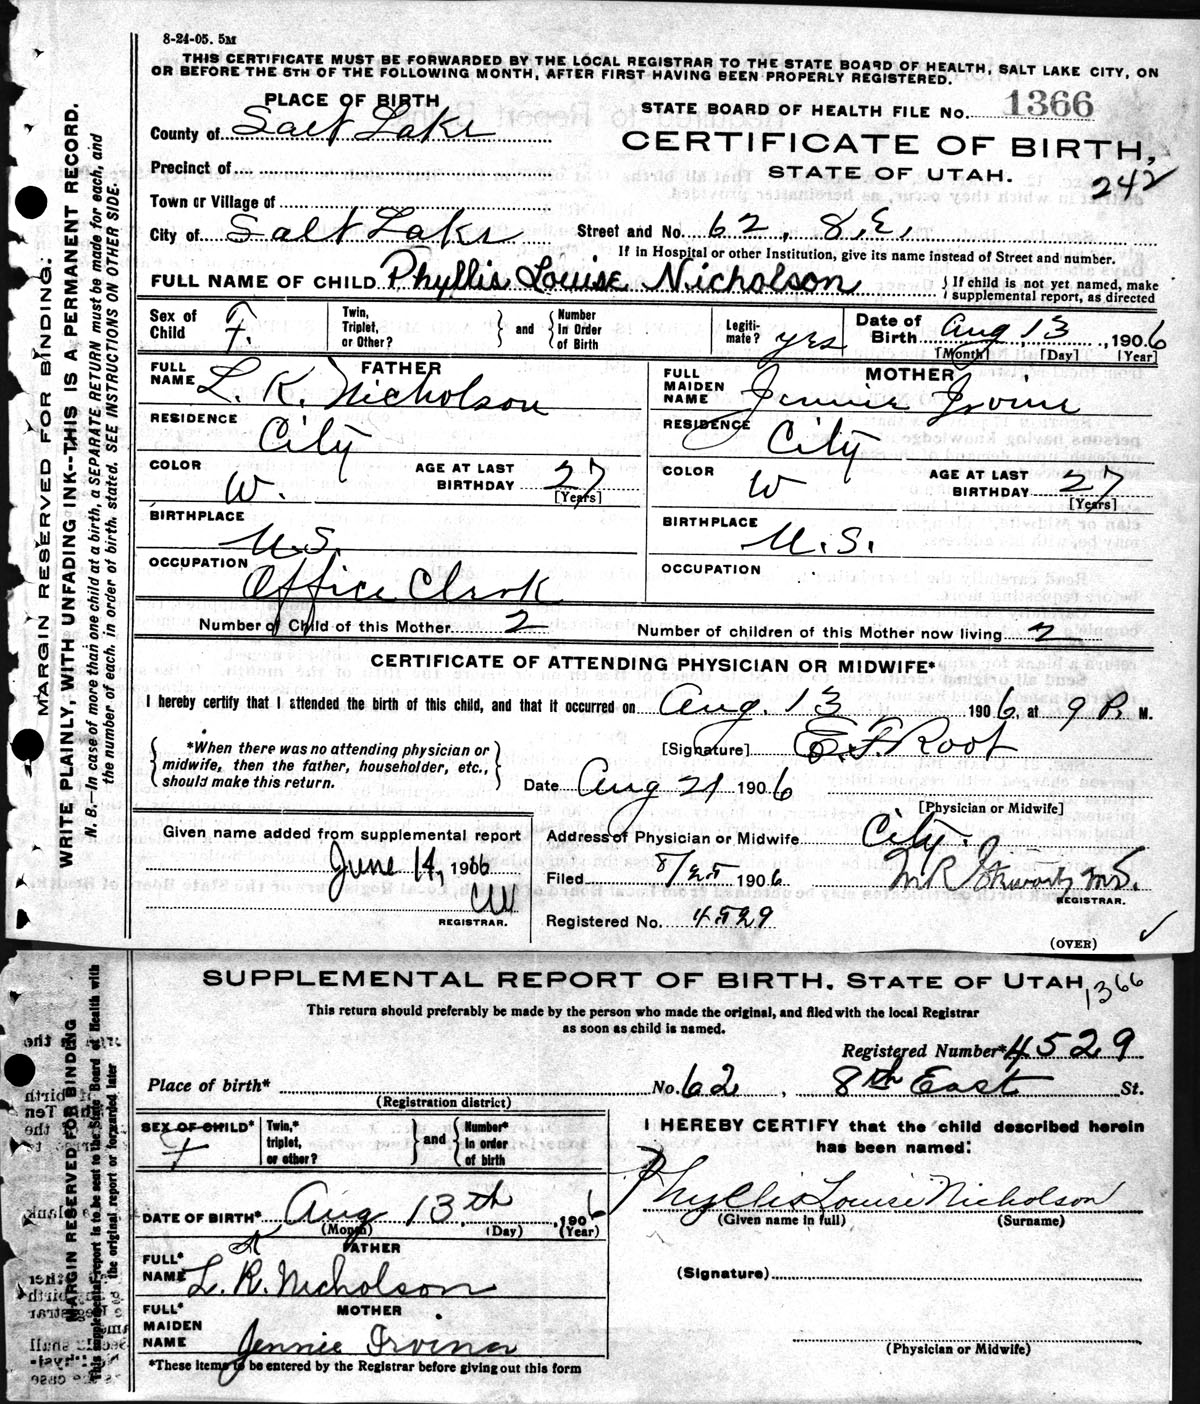 8-24-05. 5M
THIS CERTIFICATE MUST BE FORWARDED BY THE LOCAL REGISTRAR TO THE STATE BOARD OF HEALTH, SALT LAKE CITY, ON
OR BEFORE THE 5TH OF THE FOLLOWING MONTH, AFTER FIRST HAVING BEEN PROPERLY REGISTERED.
PLACE OF BIRTH
STATE BOARD OF HEALTH FILE No. 1366
County of Salt Lake
CERTIFICATE OF BIRTH,
Precinct of
STATE OF UTAH.
242
Town or Village of
City of Salt Lake
Street and No. 62, 8.E.
If in Hospital or other Institution, give its name instead of Street and number.
FULL NAME OF CHILD Phyllis Louise Nicholson
If child is not yet named, make
supplemental report, as directed
Sex of Child F.
Twin, Triplet, or Other? and Number In Order of Birth
Legiti-mate? yes
Date of Birth Aug, 13, 1906
[Month] [Day] [Year]
FATHER
FULL NAME L. K. Nicholson
RESIDENCE City
COLOR W.
AGE AT LAST BIRTHDAY 27
[Years]
BIRTHPLACE U.S.
OCCUPATION Office Clerk
MOTHER
FULL MAIDEN NAME Jennie Irvine
RESIDENCE City
COLOR W
AGE AT LAST BIRTHDAY 27
[Years]
BIRTHPLACE U.S.
OCCUPATION
Number of Child of this Mother 2
Number of children of this Mother now living 2
CERTIFICATE OF ATTENDING PHYSICIAN OR MIDWIFE*
I hereby certify that I attended the birth of this child, and that it occurred on Aug. 13 1906, at 9 P. M.
*When there was no attending physician or
midwife, then the father, householder, etc.,
should make this return.
[Signature] E.F. Root
Date Aug 21 1906
[Physician or Midwife]
Given name added from supplemental report
June 14, 1906
CW
REGISTRAR.
Address of Physician or Midwife City.
Filed 8/25 1906
REGISTRAR.
Registered No. 4529
(OVER)
MARGIN RESERVED FOR BINDING.
WRITE PLAINLY, WITH UNFADING INK--THIS IS A PERMANENT RECORD.
N. B.—In case of more than one child at a birth, a SEPARATE RETURN must be made for each, and
the number of each, in order of birth, stated. SEE INSTRUCTIONS ON OTHER SIDE.
SUPPLEMENTAL REPORT OF BIRTH, STATE OF UTAH
1366
This return should preferably be made by the person who made the original, and filed with the local Registrar
as soon as child is named.
Registered Number* 4529
Place of birth*
No. 62, 8th East St.
(Registration district)
SEX OF CHILD* F
Twin,* triplet, or other? and Number* In order of birth
DATE OF BIRTH* Aug 13th, 1906
(Month) (Day) (Year)
FATHER
FULL* NAME L. R. Nicholson
K
MOTHER
FULL* MAIDEN NAME Jennie Irvine
*These items to be entered by the Registrar before giving out this form
I HEREBY CERTIFY that the child described herein
has been named:
Phyllis Louise Nicholson
(Given name in full) (Surname)
(Signature)
(Physician or Midwife)
MARGIN RESERVED FOR BINDING
This supplemental report is to be sent to the State Board of Health with
the original report or forwarded later